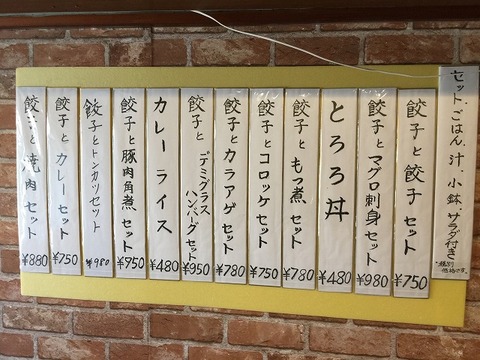 セット.ごはん.汁 小鉢.サラダ付き
*税別
価格です。
餃子と餃子セット
¥750
餃子とマグロ刺身セット
¥980
とろろ丼
¥480
餃子ともつ煮セット
¥780
餃子とコロッケセット
¥750
餃子とカラアゲセット
¥780
餃子と
デミグラス
ハンバーグセット
¥950
カレーライス
¥480
餃子と豚肉角煮セット
¥950
餃子とトンカツセット
¥980
餃子とカレーセット
¥750
餃子と焼肉セット
¥880